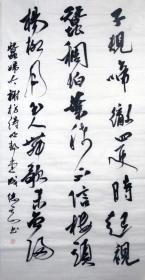 子規啼徹四更時起視
蠶稠怕葉稀不信樓頭
楊柳月玉人歌未曾歸
蠶婦吟謝枋得詩書